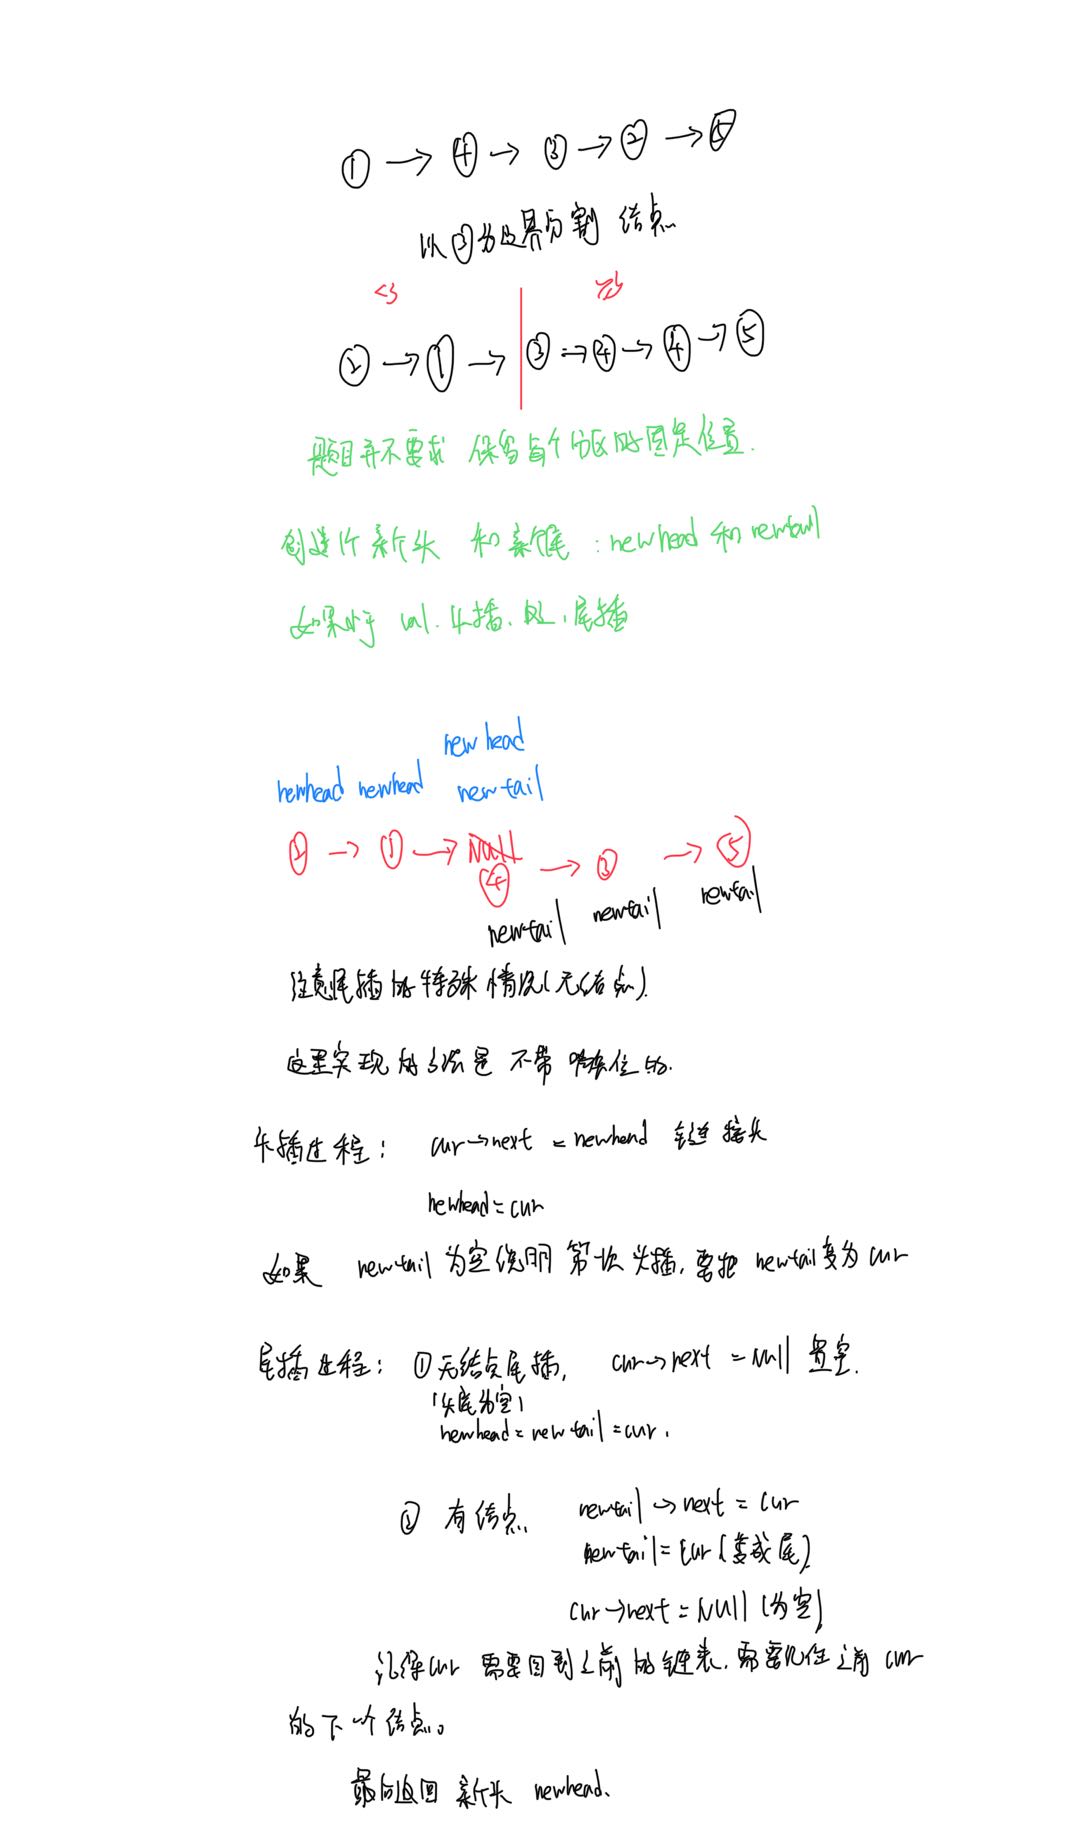 ① → ④ → ③ → ② → ⑤
以③为边界分割 结点
<3 ≥3
② → ① → ③ → ④ → ④ → ⑤
题目并不要求 保留每个分区的固定位置.
创造1个新个头 和 新个尾 : newhead 和 newtail
如果小于 val. 头插. 反之, 尾插
newhead
newhead newhead newtail
② → ① → Null
④ → ③ → ⑤
newtail newtail newtail
注意尾插的特殊情况(无结点).
这里实现的方法是 不带 哨兵位的.
头插过程: cur→next = newhead 链接头
newhead=cur
如果 newtail 为空说明 第一次 头插, 要把 newtail变为 cur
尾插过程: ①无结点尾插, cur→next = Null 置空.
(头尾为空)
newhead = newtail = cur.
② 有结点 newtail→next = cur
newtail = cur (变成尾)
cur→next = Null (为空)
记得cur 需要回到之前的链表, 需要记住之前 cur
的下一个结点。
最后返回 新个头 newhead.